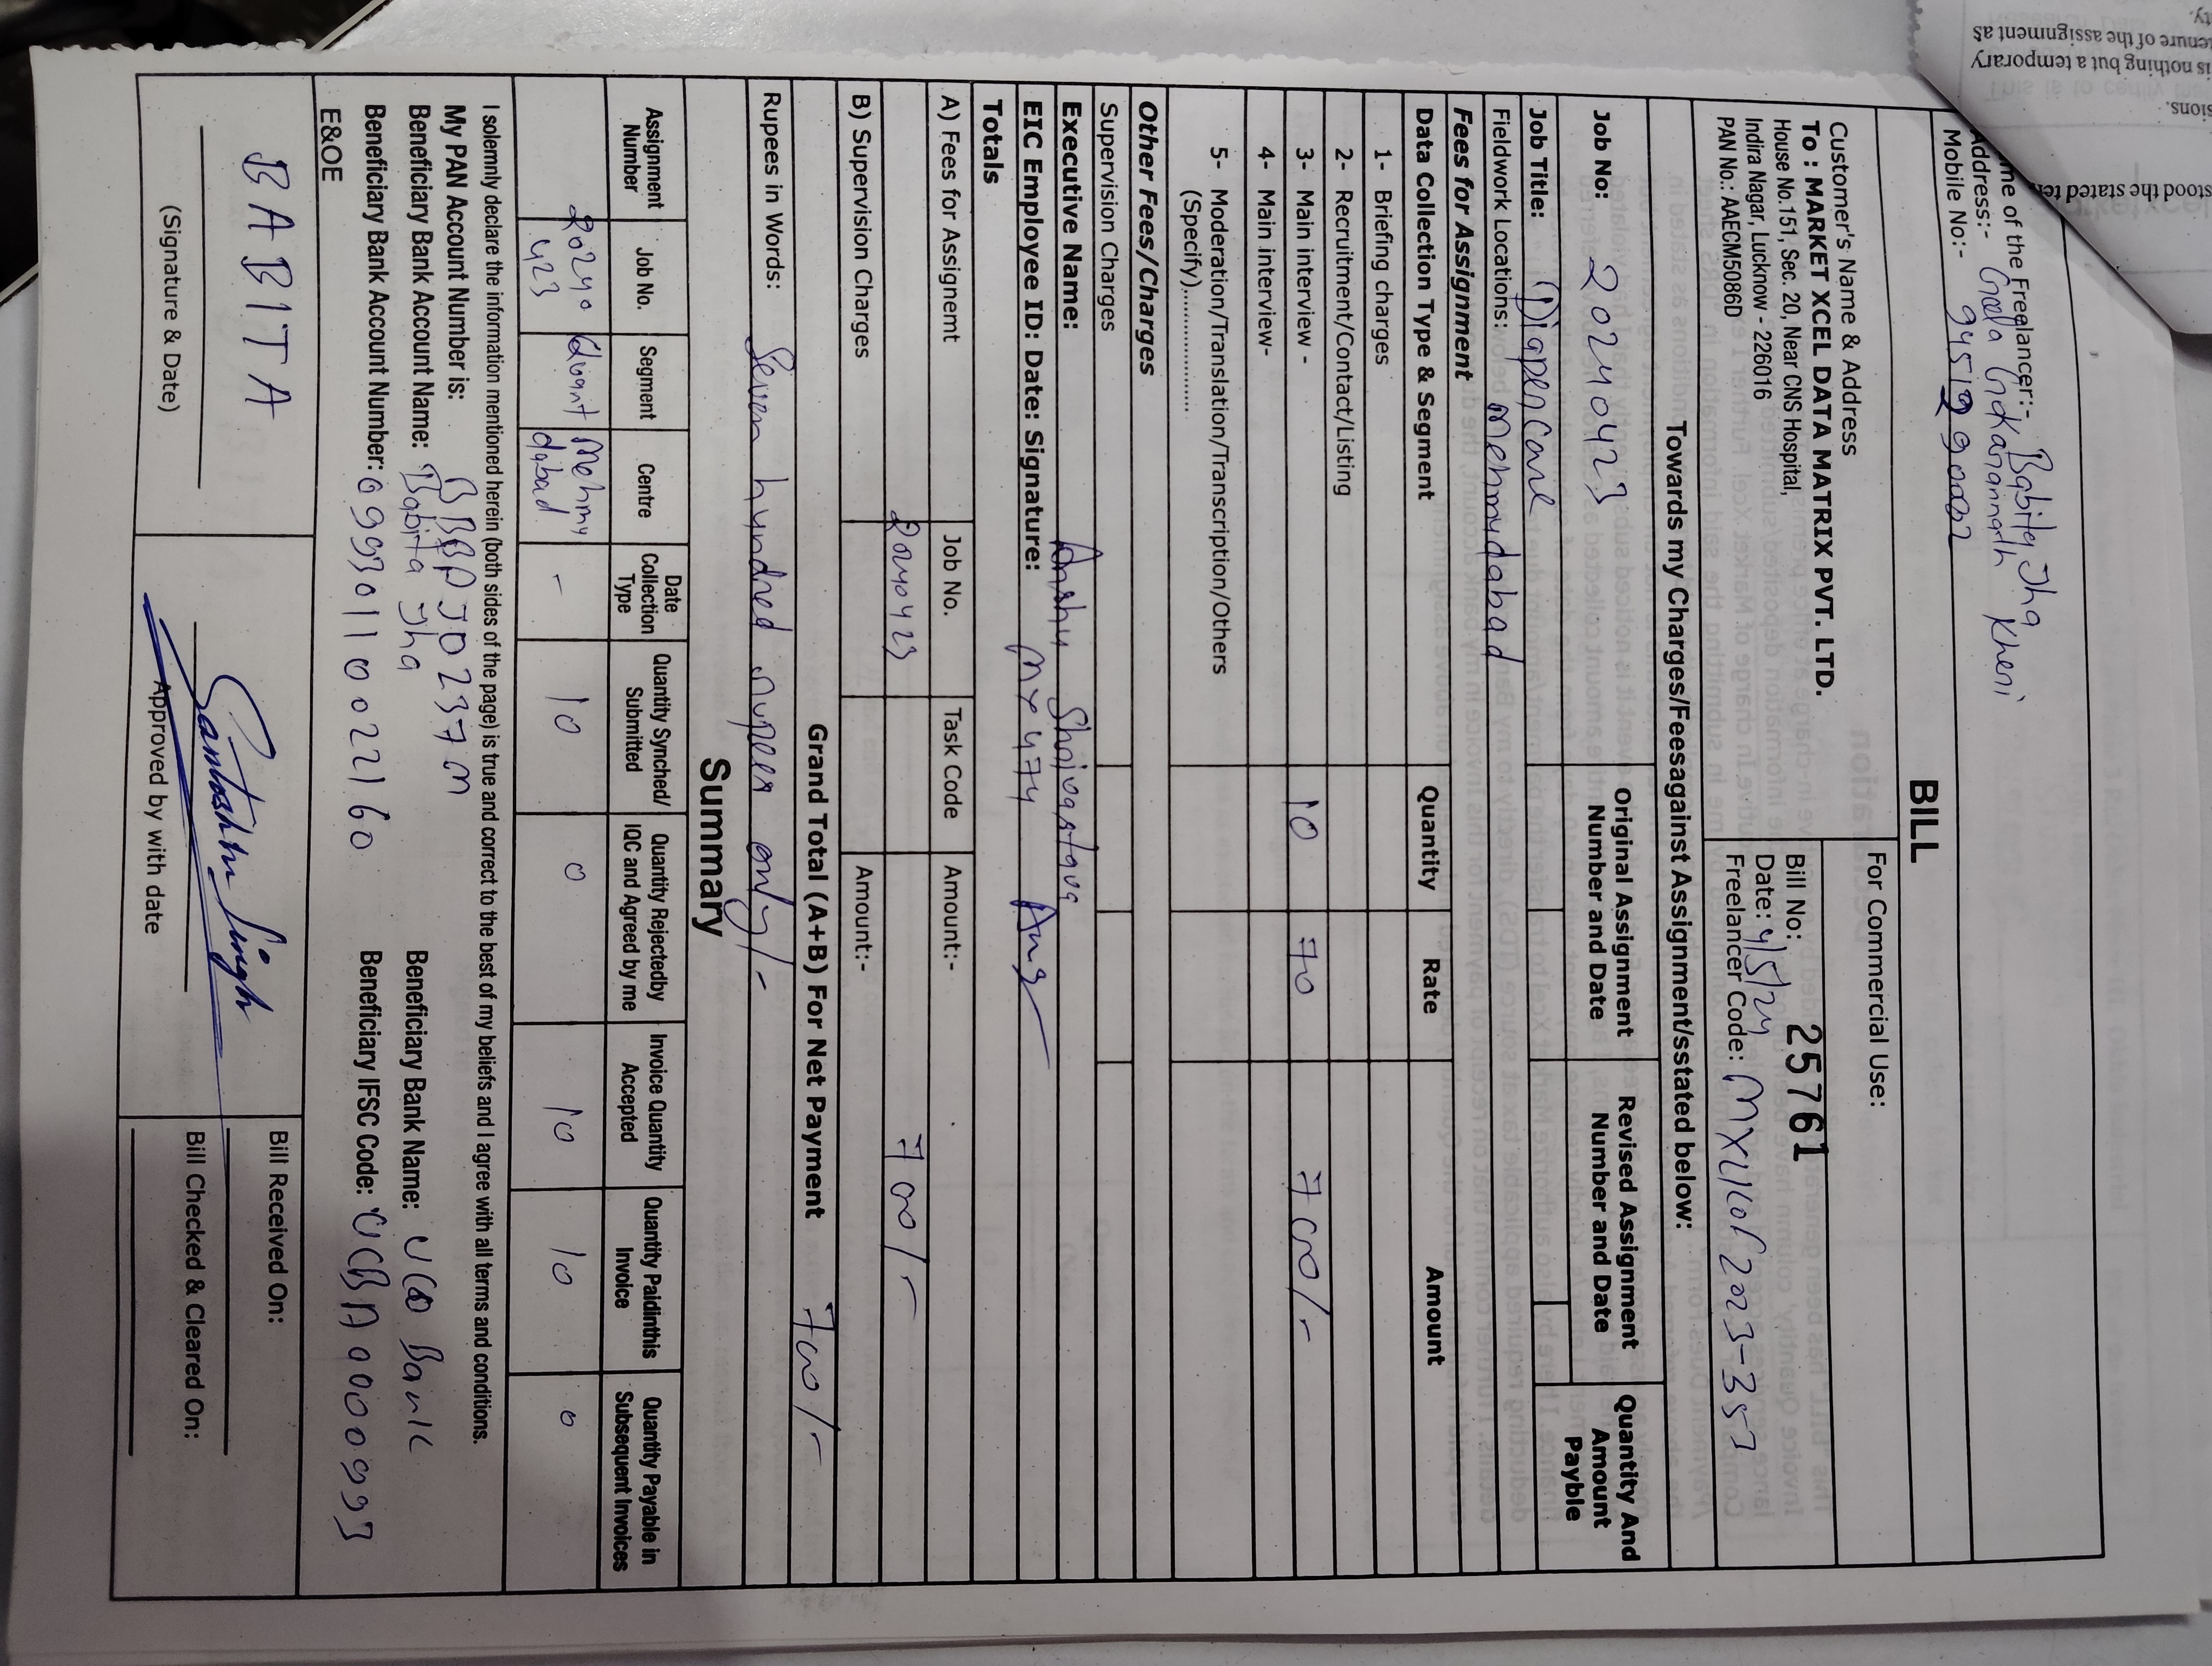 me of the Freelancer:- Babita Jha
Address:- Gola Gokarannath Kheri
Mobile No:-
BILL
For Commercial Use:
Customer's Name & Address
To : MARKET XCEL DATA MATRIX PVT. LTD.
House No.151, Sec. 20, Near CNS Hospital,
Indira Nagar, Lucknow - 226016
PAN No.: AAECM5086D
Bill No: 25761
Date: 4/5/24
Freelancer Code:
Towards my Charges/Feesagainst Assignment/sstated below:
Job No: 20240423
Original Assignment Number and Date
Revised Assignment Number and Date
Quantity And Amount Payble
Job Title: Diapercare
Fieldwork Locations: Mehmudabad
Fees for Assignment
Data Collection Type & Segment Quantity Rate Amount
1- Briefing charges
2- Recruitment/Contact/Listing
3- Main interview - 10 70 700/-
4- Main interview-
5- Moderation/Translation/Transcription/Others
(Specify)................
Other Fees/Charges
Supervision Charges
Executive Name: Anshu Shrivastava
EIC Employee ID: Date: Signature: MX4474
Totals
A) Fees for Assignemt Job No. Task Code Amount:-
20240423 700/-
B) Supervision Charges Amount:-
Grand Total (A+B) For Net Payment 700/-
Rupees in Words: Seven hundred rupees only/-
Summary
Assignment Number Job No. Segment Centre Date Collection Type Quantity Synched/ Submitted Quantity Rejectedby IQC and Agreed by me Invoice Quantity Accepted Quantity Paidinthis Invoice Quantity Payable in Subsequent Invoices
20240423 Quant Mehmudabad - 10 0 10 10 0
I solemnly declare the information mentioned herein (both sides of the page) is true and correct to the best of my beliefs and I agree with all terms and conditions.
My PAN Account Number is: BBBPJ0237M
Beneficiary Bank Account Name: Babita Jha Beneficiary Bank Name: UCO Bank
Beneficiary Bank Account Number: 09930110022160 Beneficiary IFSC Code: UCBA0000993
E&OE
BABITA
(Signature & Date)
Santoshh Singh
Approved by with date
Bill Received On:
Bill Checked & Cleared On:
stood the stated te
sions.
is nothing but a temporary
tenure of the assignment as
ty.